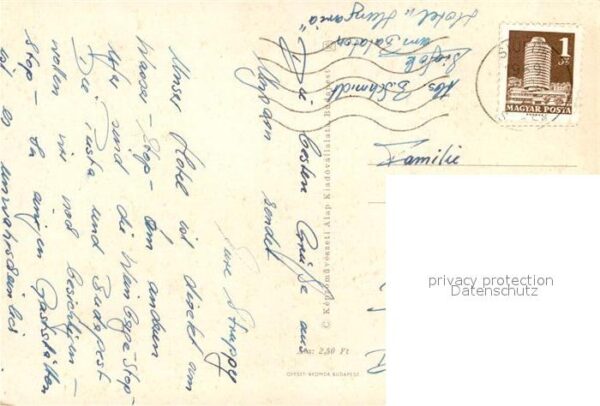 Hotel Hungaria
am Balaton
Siofok
Abs B. Schmidt
Die besten Grüße aus
Ungarn sendet
Eure
Unser Hotel ist direkt am
Wasser - Stop - Am anderen
Ufer sind die Weinberge - Stop -
Die Pusta und Budapest
werden wir noch besichtigen -
Stop - In
ist es unwahrscheinlich
Familie
1
Ft
MAGYAR POSTA
© Képzőművészeti Alap Kiadóvállalata, Budapest
Ára: 2,50 Ft
OFFSET-NYOMDA BUDAPEST
privacy protection
Datenschutz